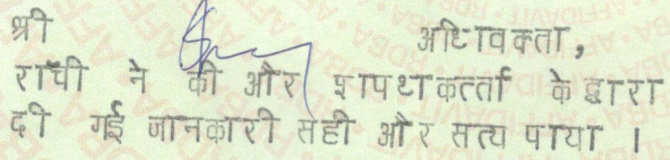 श्री अधिवक्ता,
राँची ने की और शपथकर्त्ता के द्वारा
दी गई जानकारी सही और सत्य पाया ।